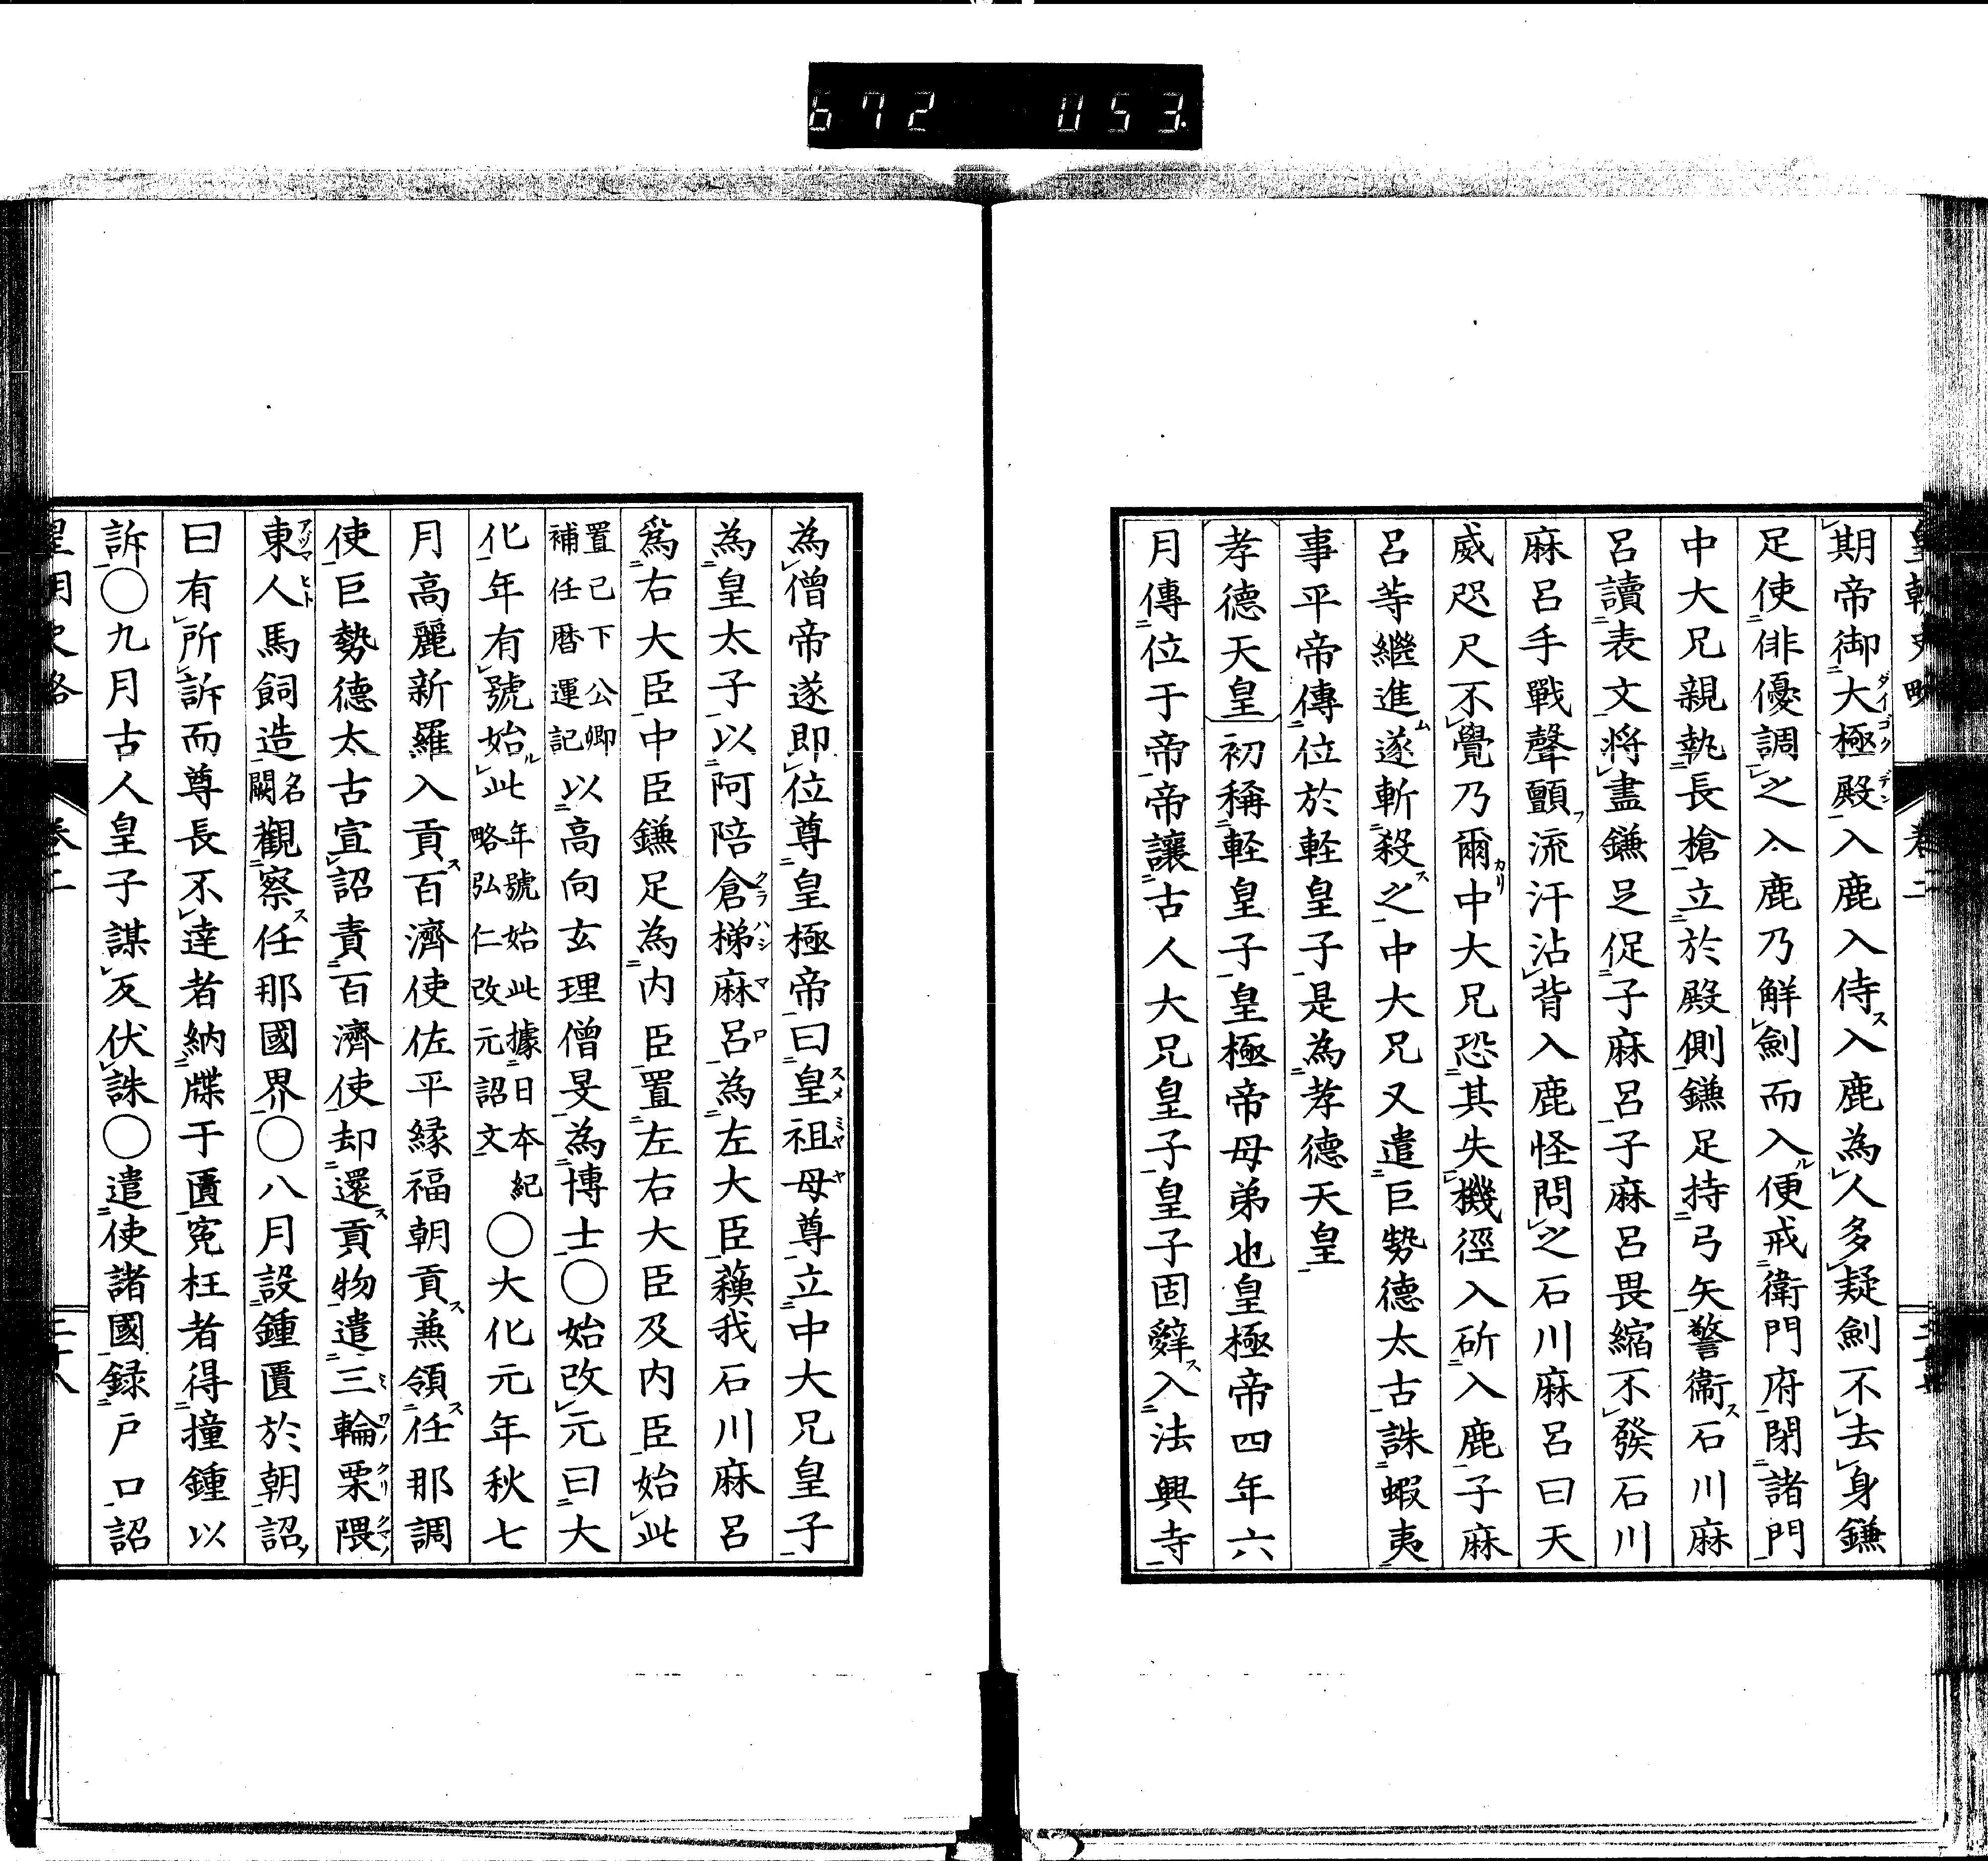 672 053
期帝御大極殿入鹿入侍入鹿為人多疑劍不去身鎌
足使俳優調之入鹿乃解劍而入便戒衛門府閉諸門
中大兄親執長槍立於殿側鎌足持弓矢警衞石川麻
呂讀表文将盡鎌足促子麻呂子麻呂畏縮不發石川
麻呂手戰聲顫流汗沾背入鹿怪問之石川麻呂曰天
威咫尺不覺乃爾中大兄恐其失機徑入斫入鹿子麻
呂等繼進遂斬殺之中大兄又遣巨勢德太古誅蝦夷
事平帝傳位於軽皇子是為孝德天皇
孝德天皇初稱軽皇子皇極帝母弟也皇極帝四年六
月傳位于帝帝讓古人大兄皇子皇子固辭入法興寺
為僧帝遂即位尊皇極帝曰皇祖母尊立中大兄皇子
為皇太子以阿陪倉梯麻呂為左大臣蘓我石川麻呂
為右大臣中臣鎌足為内臣置左右大臣及内臣始此
置已下公卿補任暦運記以高向玄理僧旻為博士〇始改元曰大
化年有號始此年號始此據日本紀略弘仁改元詔文〇大化元年秋七
月高麗新羅入貢百濟使佐平縁福朝貢兼領任那調
使巨勢德太古宣詔責百濟使却還貢物遣三輪栗隈
東人馬飼造名闕觀察任那國界〇八月設鍾匱於朝詔
曰有所訴而尊長不達者納牒于匱寃枉者得撞鍾以
訴〇九月古人皇子謀反伏誅〇遣使諸國録戸口詔